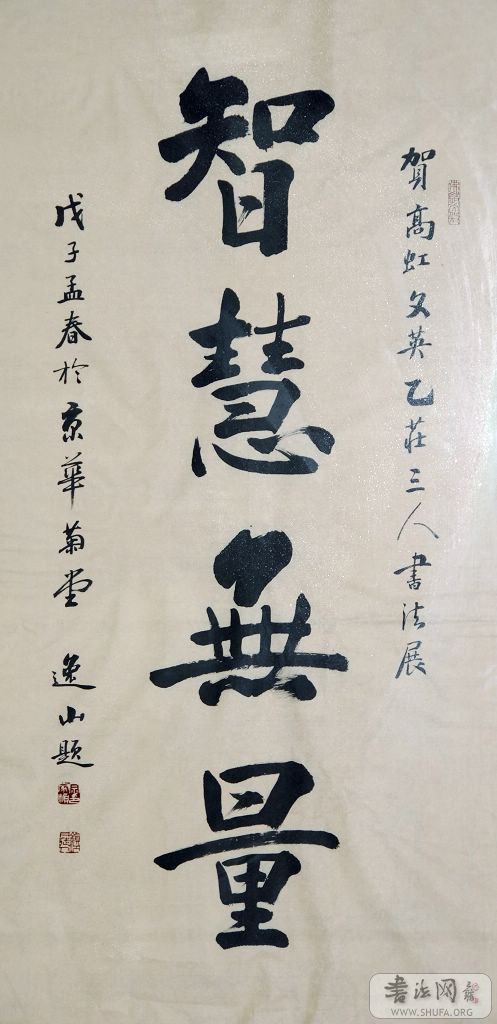 賀高虹文英乙莊三人書法展
智慧無量
戊子孟春於京華菊堂 逸山題
书法网
WWW.SHUFA.ORG